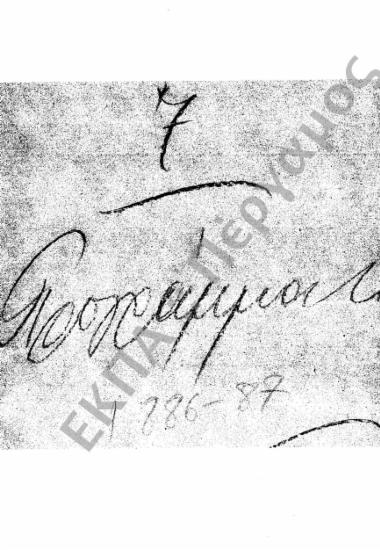 7
Προγράμματ
286-87
ΕΚΠΑ Πέργαμος